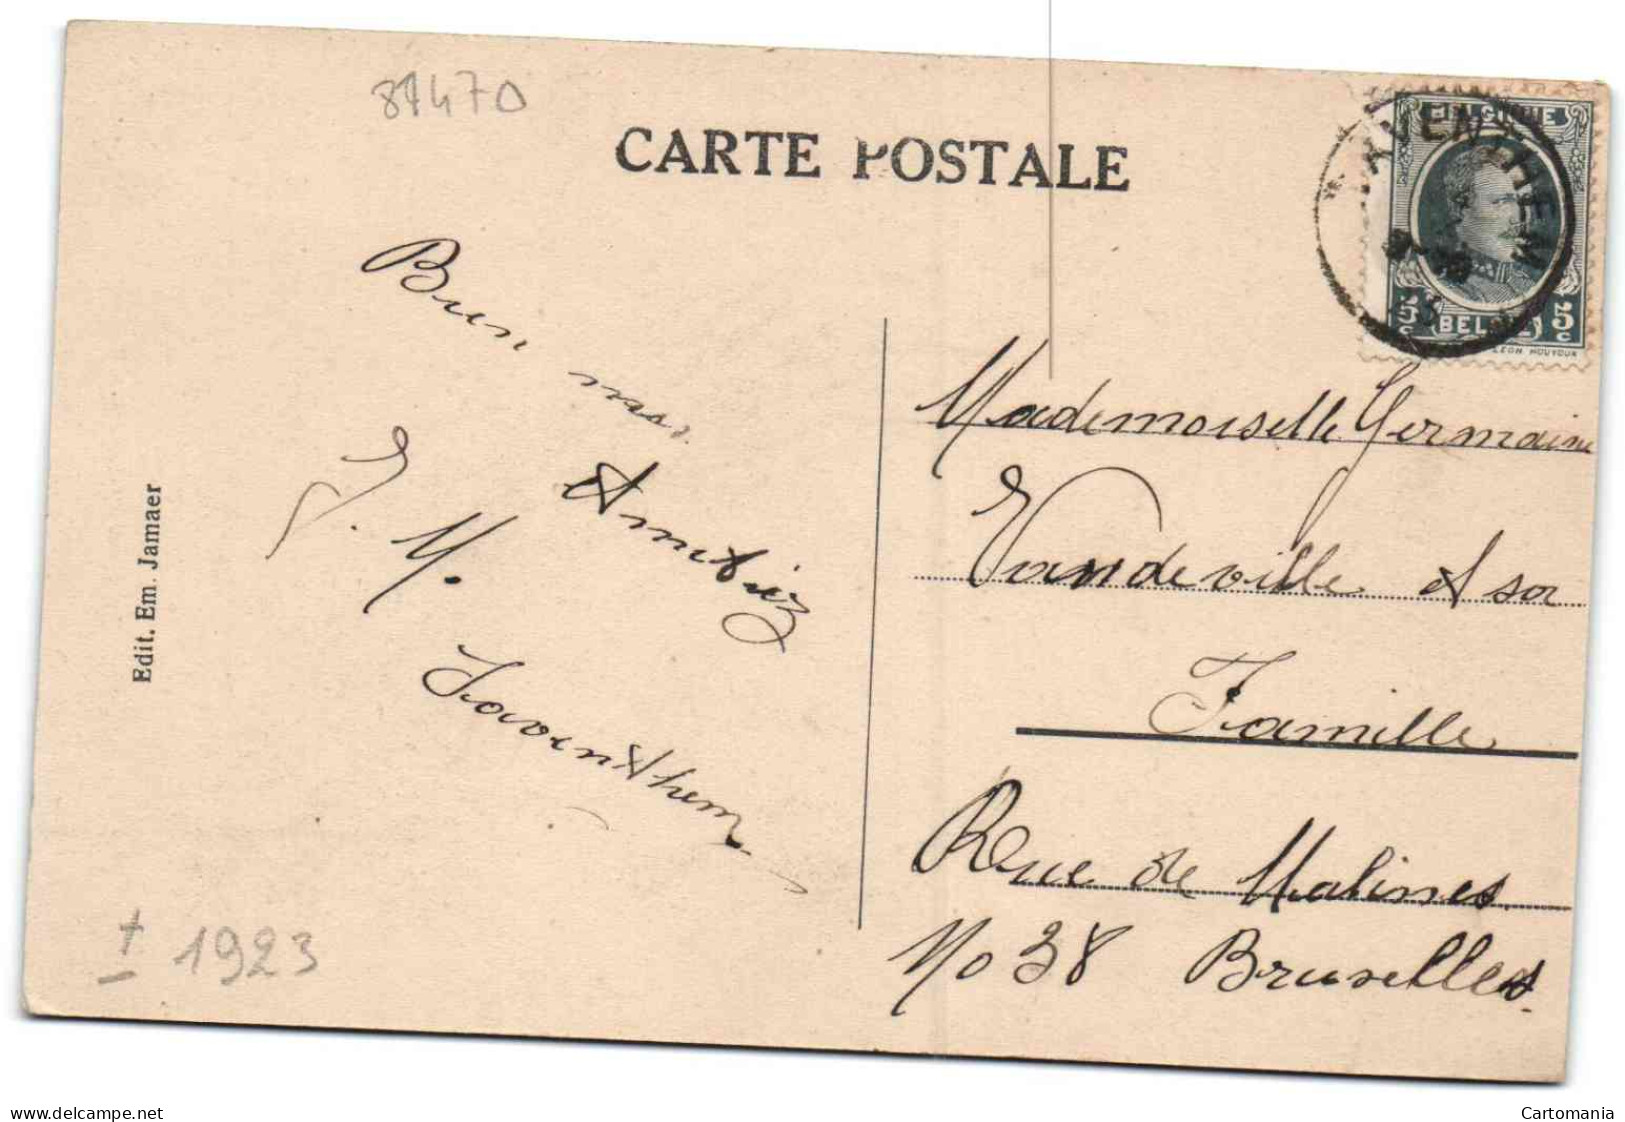 87470
CARTE POSTALE
BELGIQUE
AVENTHEM
5c BELGIE 5c
LEON HOUYOUX
Bien
J. M.
Saventhem
Mademoiselle Germaine
Vandeville et sa
Famille
Rue de Malines
No 38 Bruxelles.
Edit. Em. Jamaer
± 1923
www.delcampe.net
Cartomania